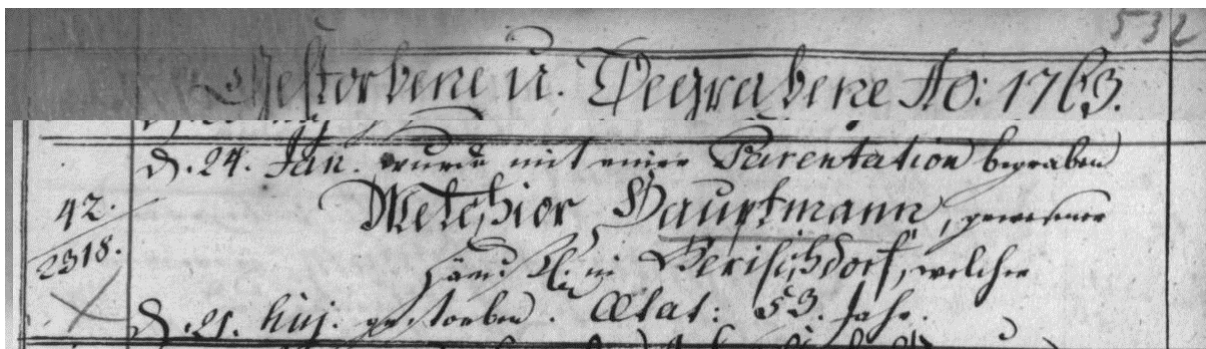 532
Gestorbene u. Begrabene Ao: 1763.
d. 24. Jan. wurde mit einer Parentation begraben
42. Melchior Hauptmann, gewesener
2318. Häusl. in Gerischdorf, welcher
d. 21. huj. gestorben. Ætat: 53. Jahr.